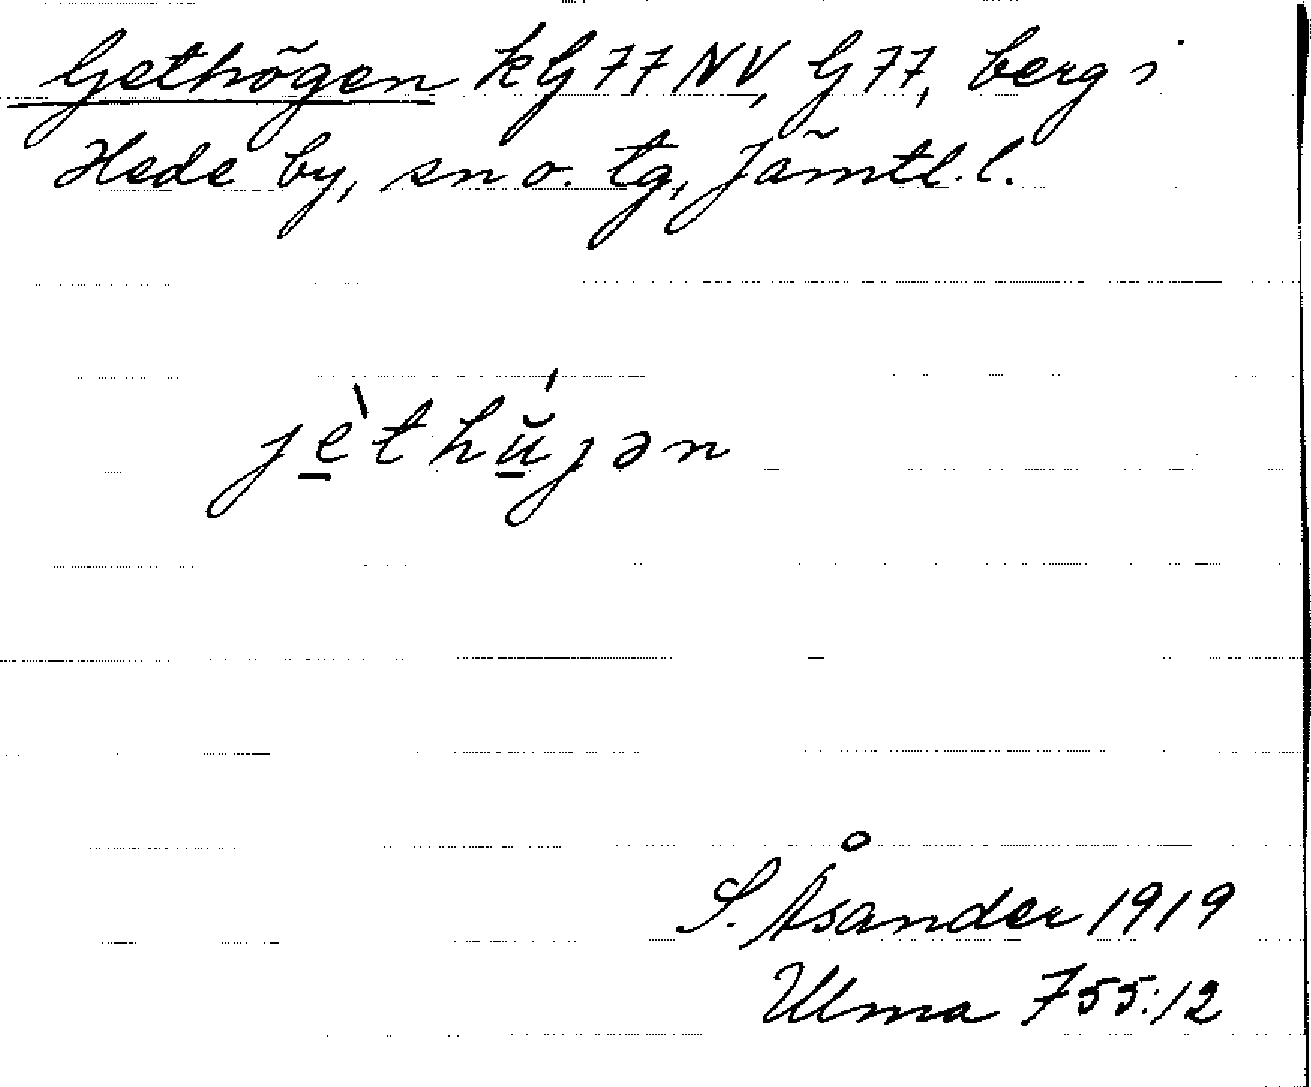 Gethögen kG77NV, G77, berg i
Hede by, sn o. tg, Jämtl. l.
jè̱thṵ̆́jən
S. Åsander 1919
Ulma 755:12